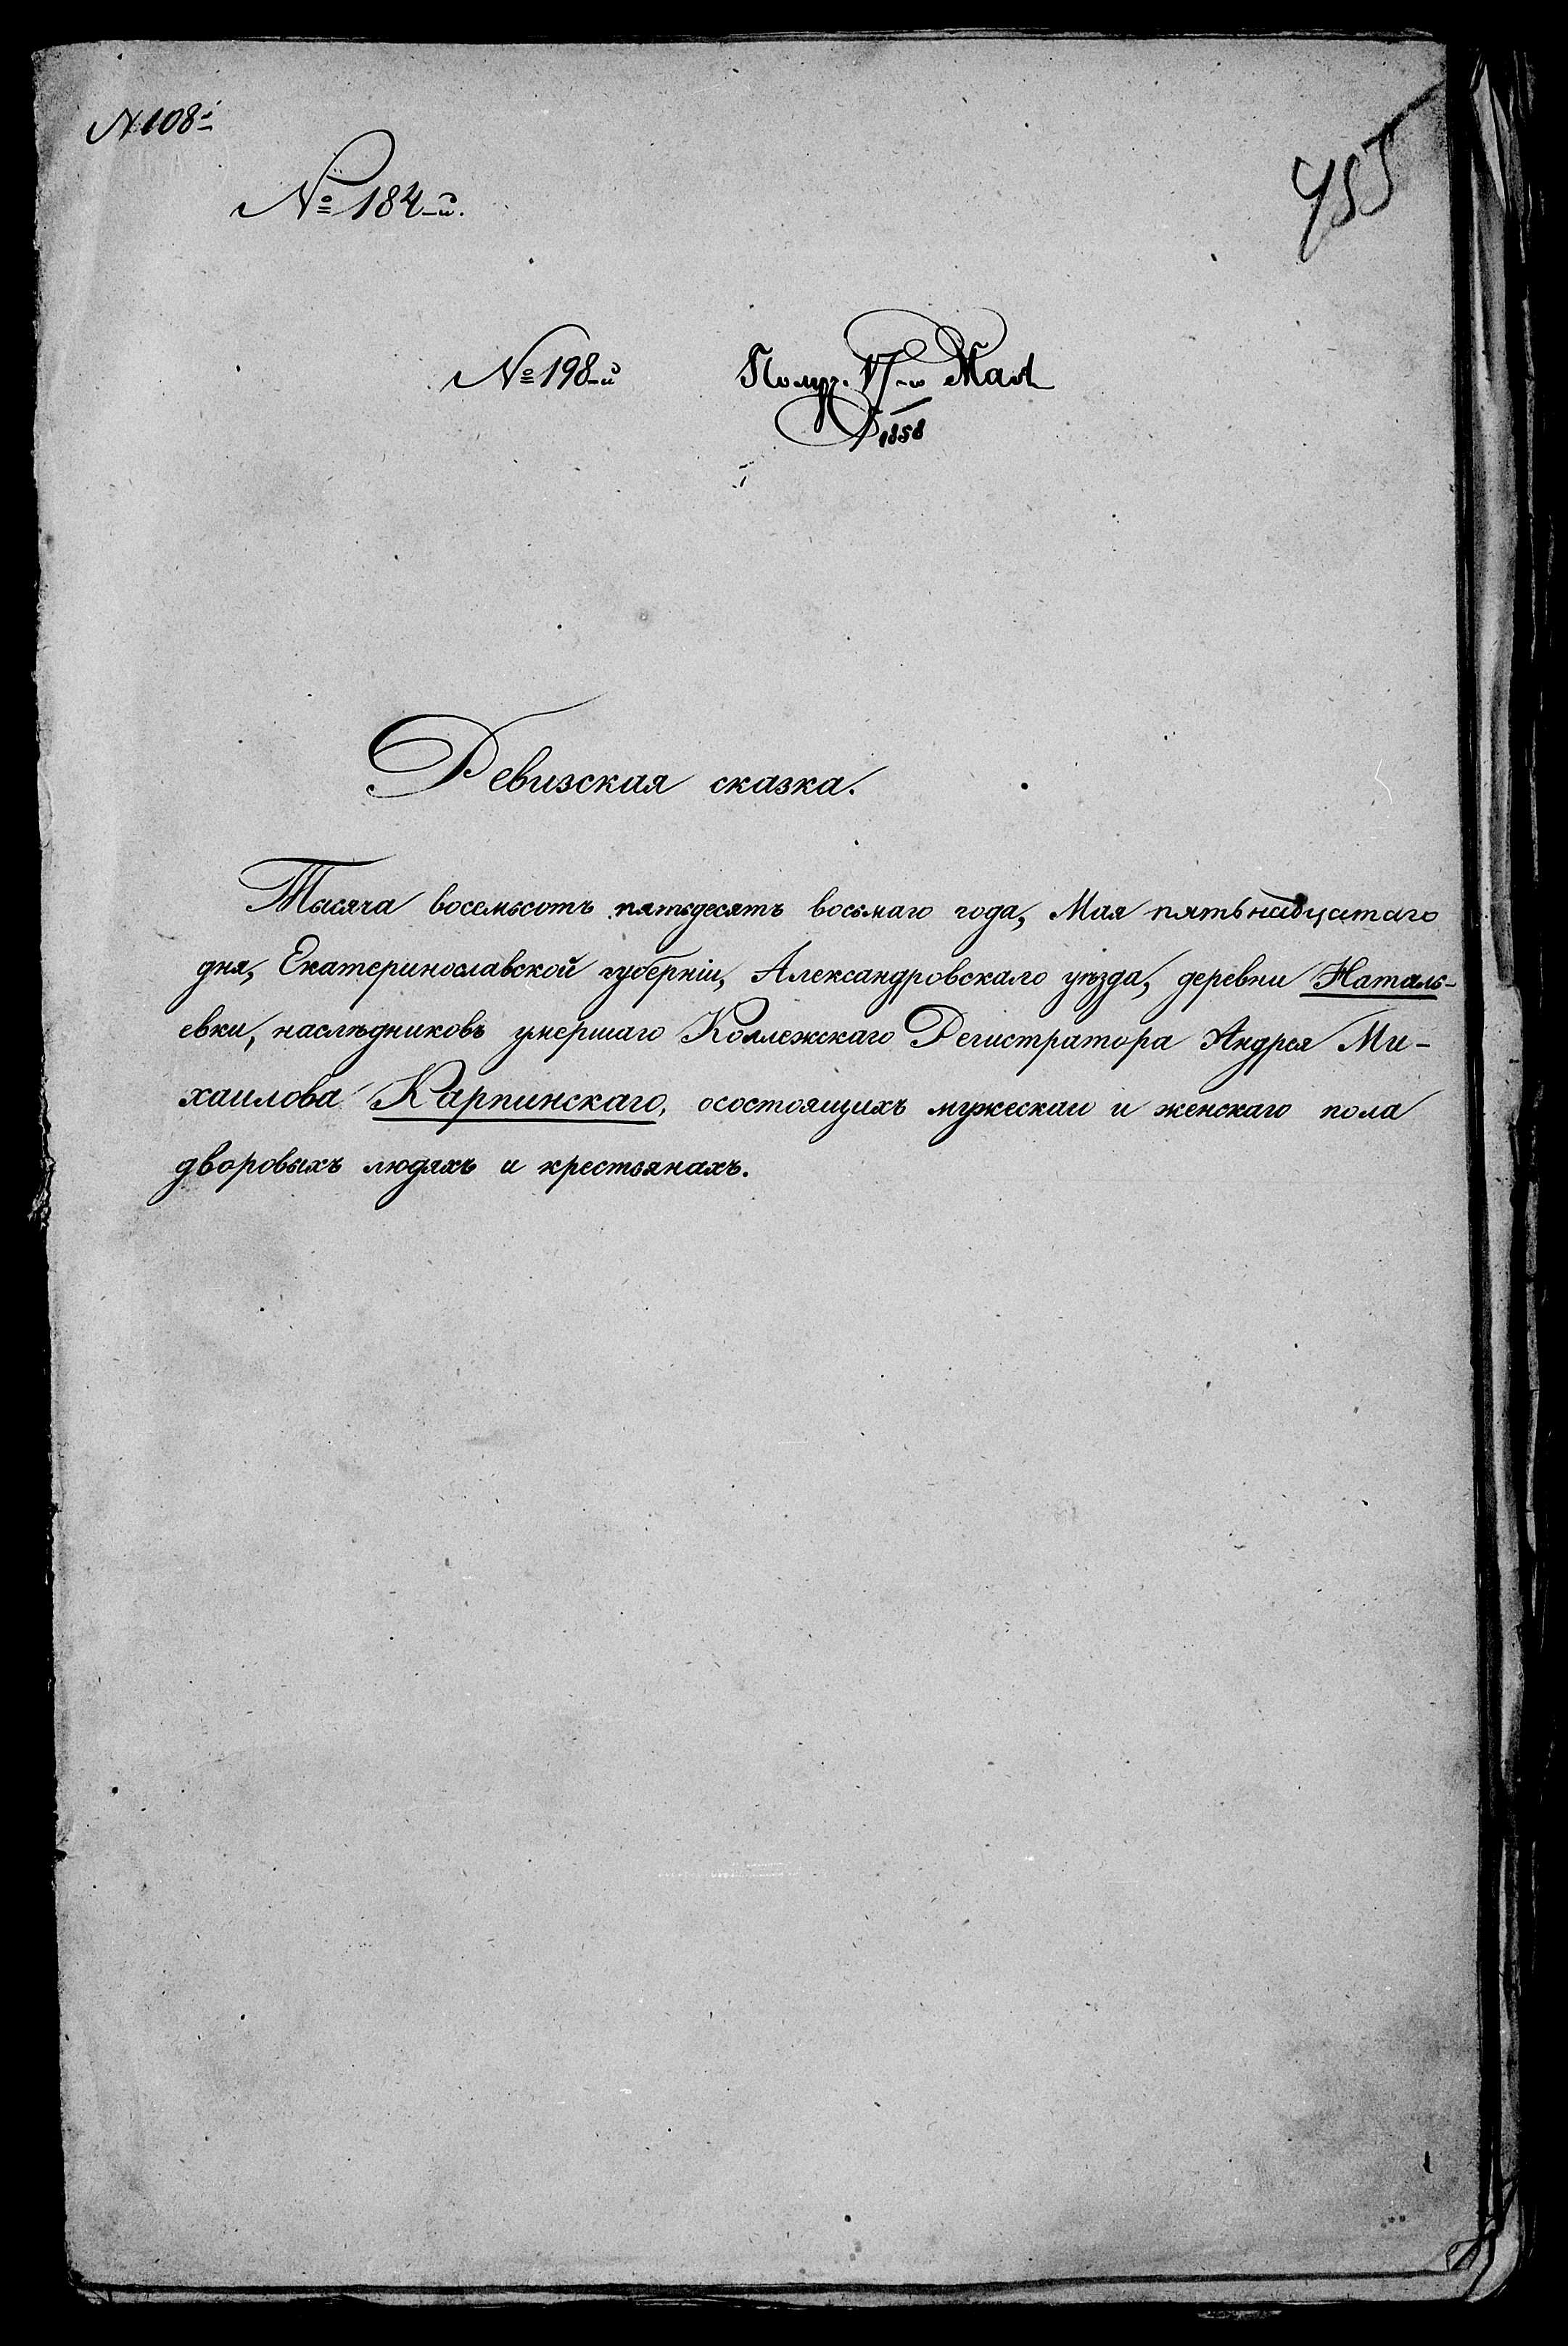 N 108й
455
№ 184-й.
№ 198-й Получ. 17-го Мая
1858
Ревизская сказка.
Тысяча восемьсотъ пятьдесятъ восьмаго года, Мая пятьнадцатаго
дня, Екатеринославской губерніи, Александровскаго уѣзда, деревни Наталь-
евки, наслѣдниковъ умершаго Коллежскаго Регистратора Андрея Ми-
хаилова Карпинскаго, осостоящихъ мужескаго и женскаго пола
дворовыхъ людяхъ и крестьянахъ.